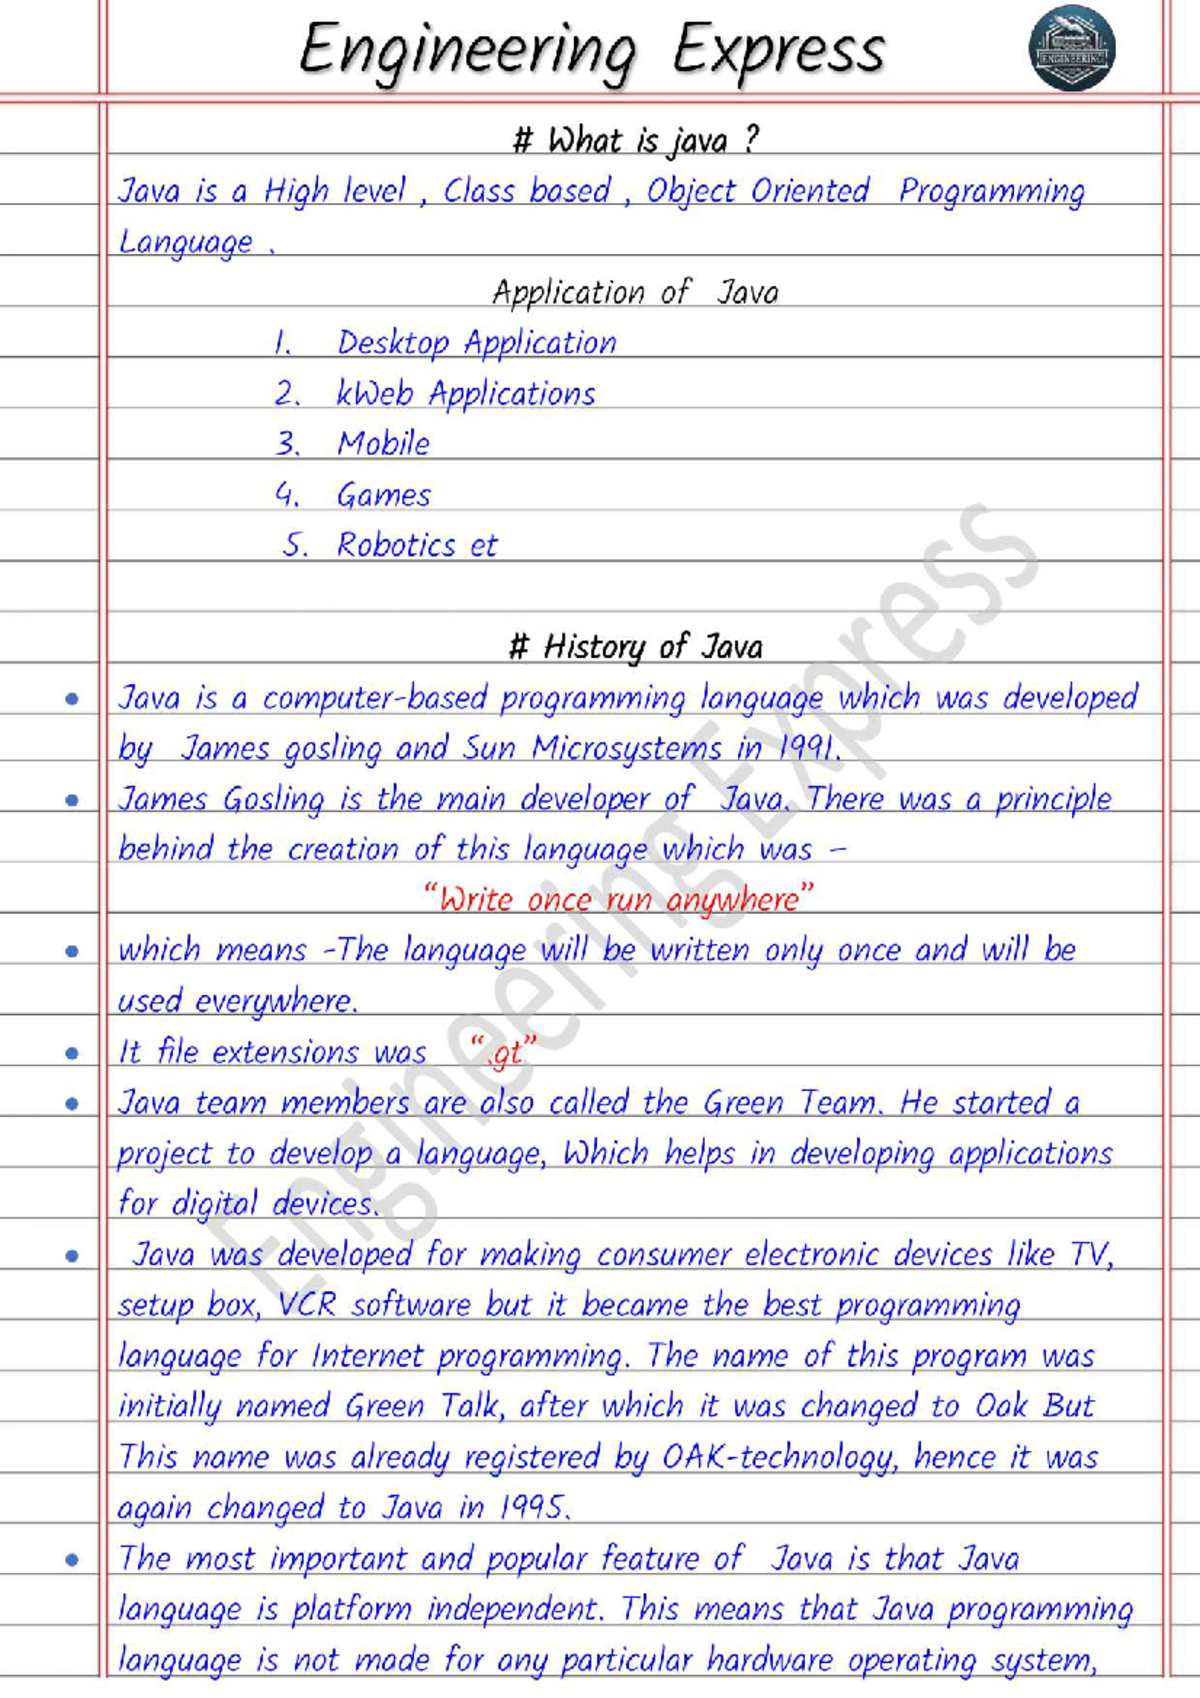 Engineering Express
ENGINEERING
# What is java ?
Java is a High level , Class based , Object Oriented Programming
Language .
Application of Java
1. Desktop Application
2. kWeb Applications
3. Mobile
4. Games
5. Robotics et
# History of Java
• Java is a computer-based programming language which was developed
by James gosling and Sun Microsystems in 1991.
• James Gosling is the main developer of Java. There was a principle
behind the creation of this language which was –
“Write once run anywhere”
• which means -The language will be written only once and will be
used everywhere.
• It file extensions was “.gt”
• Java team members are also called the Green Team. He started a
project to develop a language, Which helps in developing applications
for digital devices.
• Java was developed for making consumer electronic devices like TV,
setup box, VCR software but it became the best programming
language for Internet programming. The name of this program was
initially named Green Talk, after which it was changed to Oak But
This name was already registered by OAK-technology, hence it was
again changed to Java in 1995.
• The most important and popular feature of Java is that Java
language is platform independent. This means that Java programming
language is not made for any particular hardware operating system,
Engineering Express